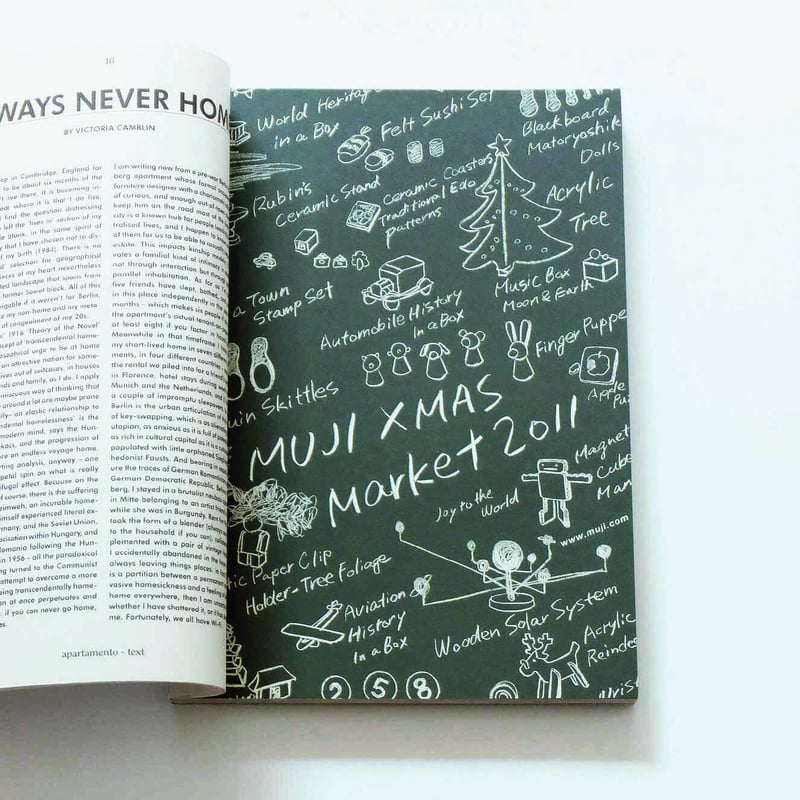 16
WAYS NEVER HOM
BY VICTORIA CAMBLIN
ep in Cambridge, England for
to be about six months of the
't live there. It is becoming in-
ear where it is that I do live,
I find the question distressing
left the 'lives in' section of my
le blank, in the same spirit of
y that I have chosen not to dis-
my birth (1984). There is no
selection for geographical
ieces of my heart nevertheless
ted landscape that spans from
former Soviet block. All of this
vigable if it weren't for Berlin,
e my non-home and my meta-
of congealment of my 20s.
1916 'Theory of the Novel'
ncept of 'transcendental home-
osophical urge to be at home
an attractive notion for some-
ives out of suitcases, in houses
nds and family, as I do. I apply
miscuous way of thinking that
around a lot are maybe prone
ally– an elastic relationship to
dental homelessness' is the
modern mind, says the Hun-
kács, and the progression of
re an endless voyage home.
rting analysis, anyway – one
petal spin on what is really
ifugal effect. Because on the
of course, there is the suffering
eimweh, an incurable home-
imself experienced literal ex-
rmany, and the Soviet Union,
ocisation within Hungary, and
Romania following the Hun-
in 1956 – all the paradoxical
ng turned to the Communist
attempt to overcome a more
eing transcendentally home-
n at once perpetuates and
if you can never go home,
es.
I am writing now from a pre-war
berg apartment whose formal
furniture designer with a cha
of curious, and enough out-of
keep him on the road most of the
city is a known hub for people
tralised lives, and I happen to
of them for us to be able to
estate. This impacts kinship
vates a familial kind of intimacy
not through interaction but through
parallel inhabitation. As far as
five friends have slept, bathed,
in this place independently in the
months – which makes six people
the apartment's actual tenant
at least eight if you factor in
Meanwhile in that timeframe
my short-lived home in seven
ments, in four different countries
the rental we piled into for a
in Florence, hotel stays during
Munich and the Netherlands, and
a couple of impromptu sleepovers
Berlin is the urban articulation of
of key-swapping, which is as
utopian, as anxious as it is full of
as rich in cultural capital as it is
populated with little orphaned
hedonist Fausts. And bearing
ure the traces of German Rom
German Democratic Republic,
berg, I stayed in a brutalist
in Mitte belonging to an artist
while she was in Burgundy. Rent
took the form of a blender (always
to the household if you can),
plemented with a pair of vintage
I accidentally abandoned in the
always leaving things places,
is a partition between a perma
vasive homesickness and a feeling
home everywhere, then I am un
whether I have shattered it, or it
me. Fortunately, we all have Wi-Fi.
apartamento - text
World Heritage
in a Box
Felt Sushi Set
Blackboard
Matoryoshik
Dolls
Rubin's
Ceramic Stand
Ceramic Coastors
Traditional Edo
patterns
Acrylic
Tree
a Town
Stamp Set
Music Box
Moon & Earth
Automobile History
In a Box
Finger Puppe
Apple
Pai
uin Skittles
MUJI XMAS
Market 2011
Magnet
Cube
Man
Joy to the
World
www.muji.com
tic Paper Clip
Holder-Tree Foliage
Aviation
History
In a Box
Wooden Solar System
Acrylic
Reindee
2 5 8
Wrist